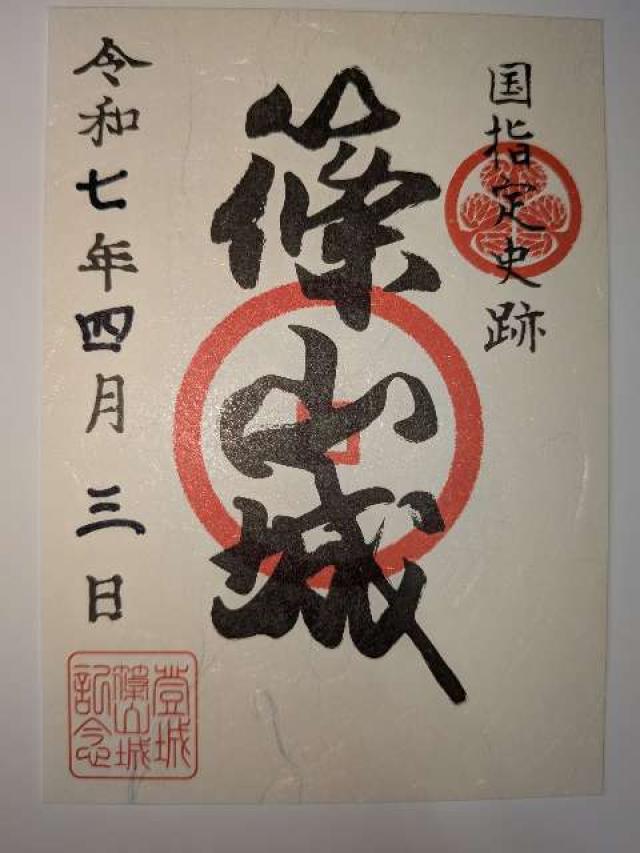 国指定史跡
篠山城
令和七年四月三日
登城
篠山城
記念